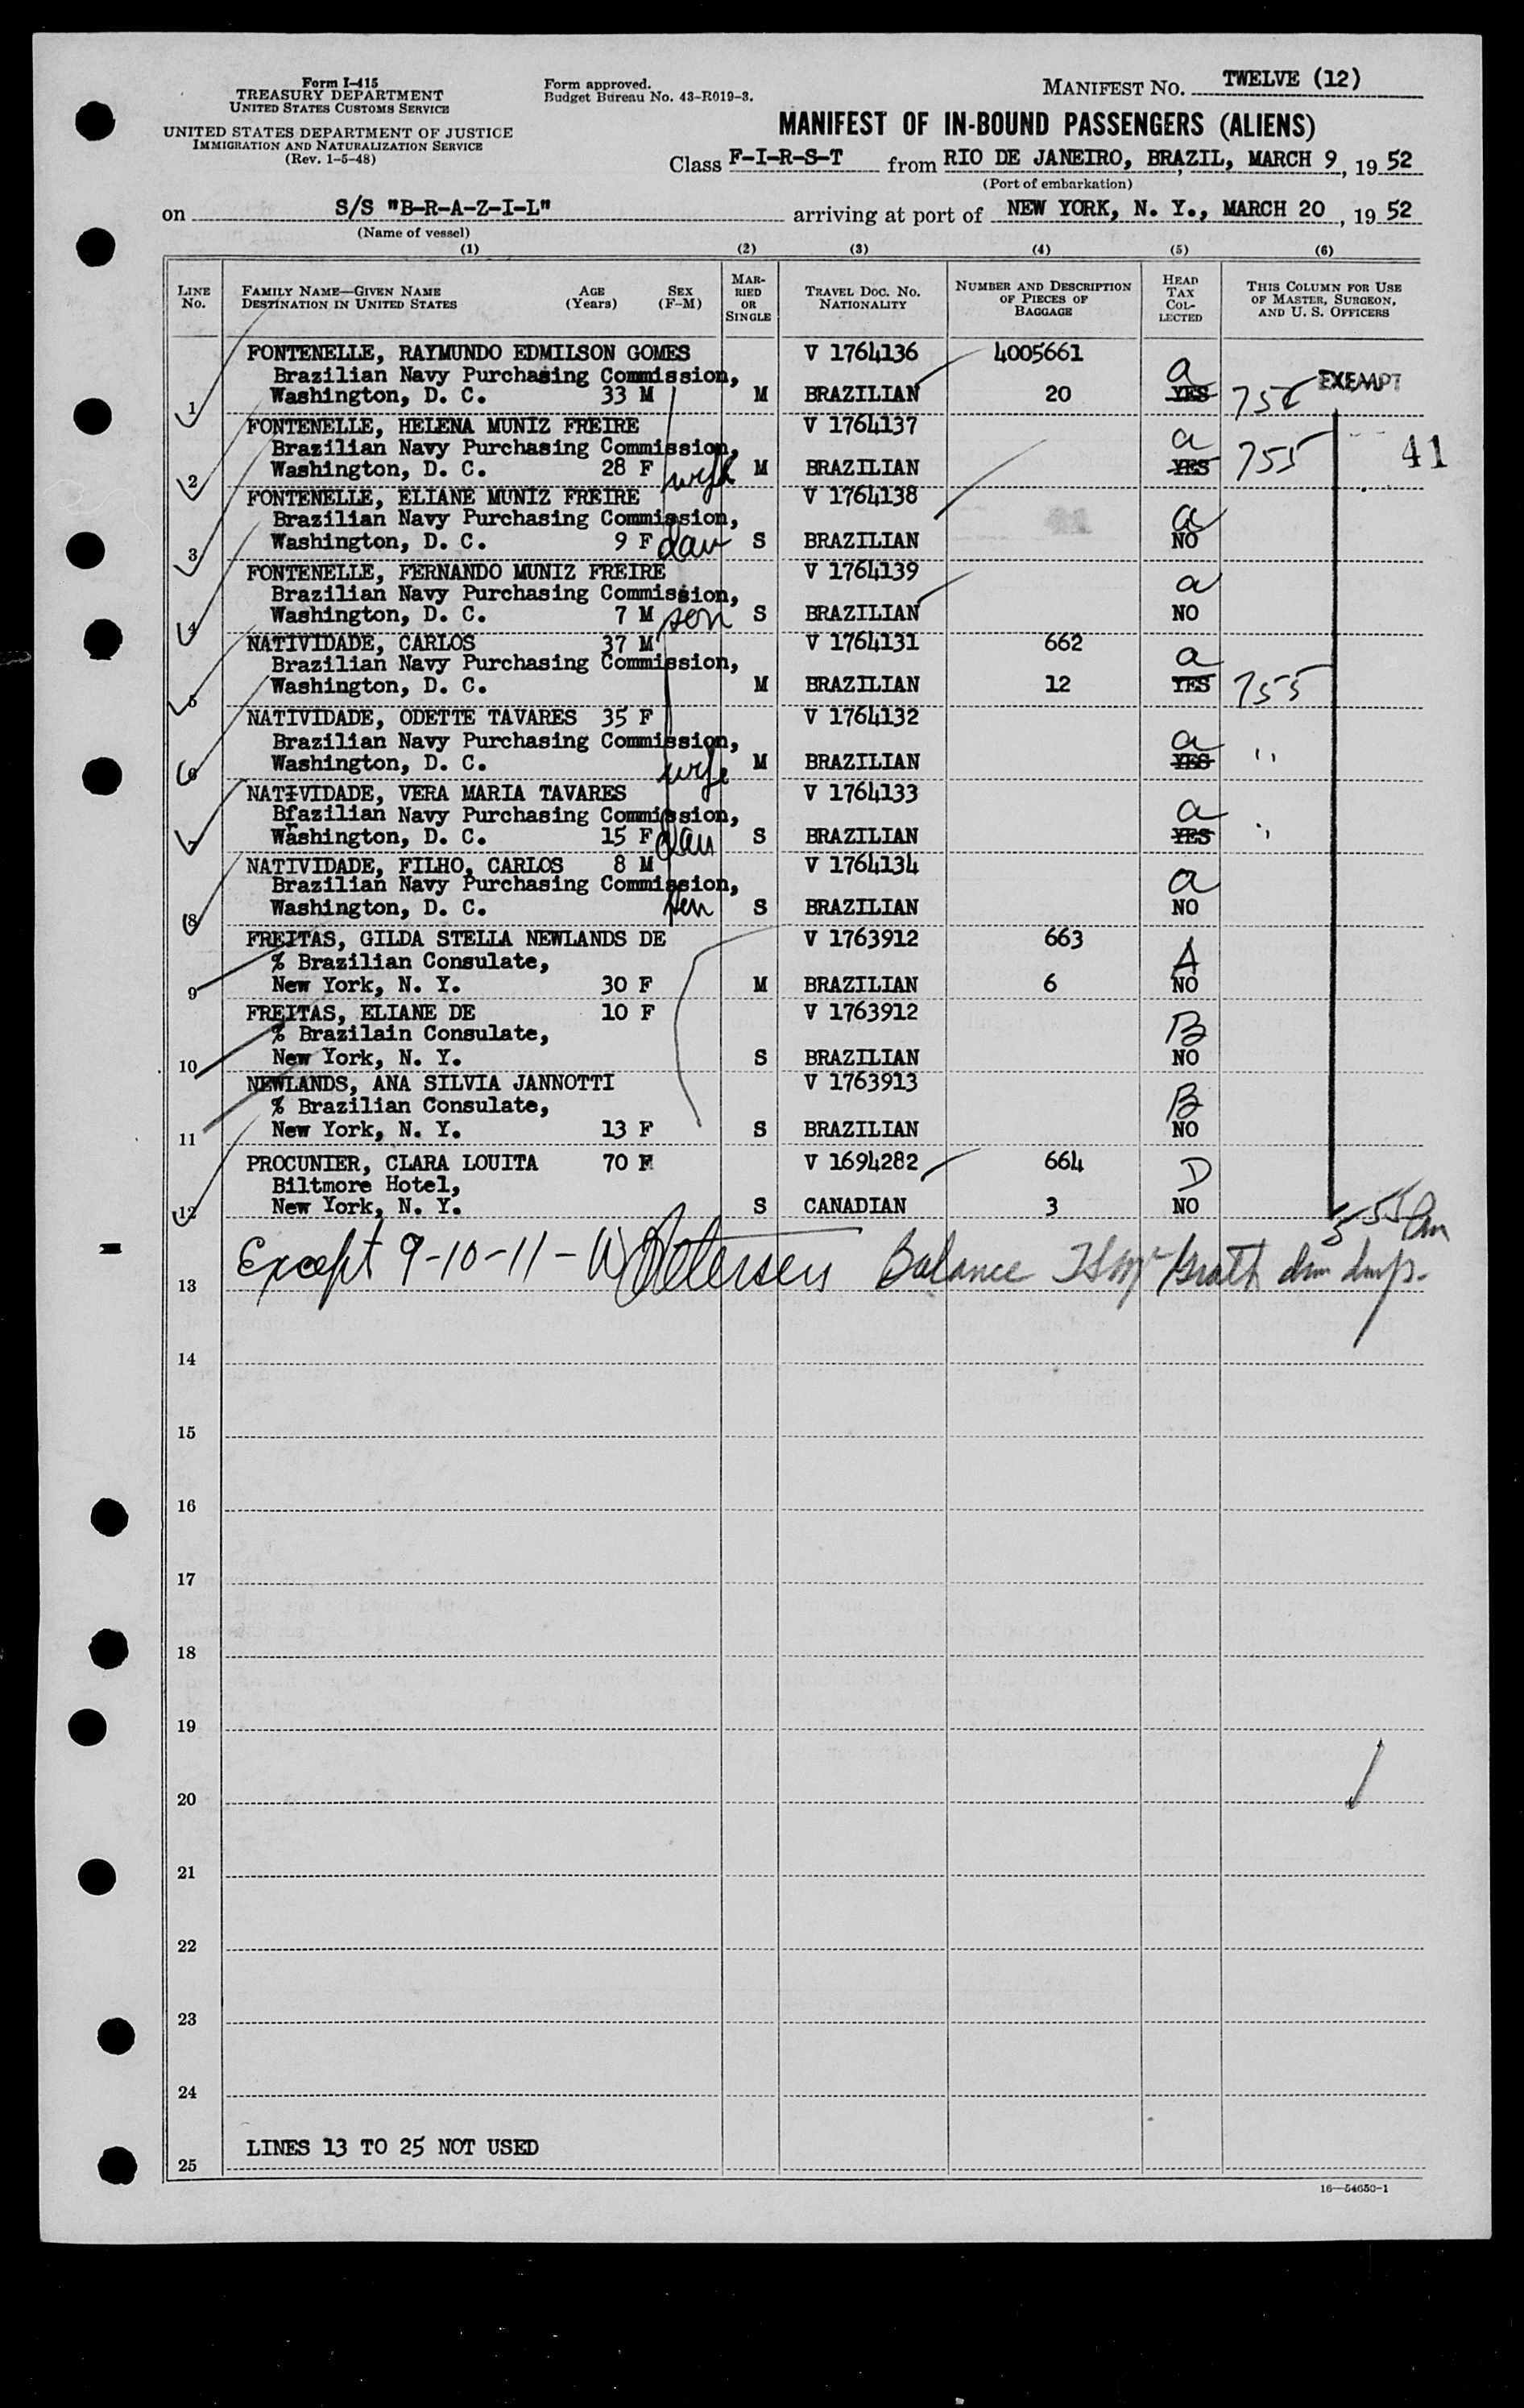 Form I-415
TREASURY DEPARTMENT
UNITED STATES CUSTOMS SERVICE
UNITED STATES DEPARTMENT OF JUSTICE
IMMIGRATION AND NATURALIZATION SERVICE
(Rev. 1-5-48)
Form approved.
Budget Bureau No. 43-R019-3.
MANIFEST NO. TWELVE (12)
MANIFEST OF IN-BOUND PASSENGERS (ALIENS)
Class F-I-R-S-T from RIO DE JANEIRO, BRAZIL, MARCH 9, 19 52
(Port of embarkation)
on S/S "B-R-A-Z-I-L" arriving at port of NEW YORK, N. Y., MARCH 20, 19 52
(Name of vessel)
(1) (2) (3) (4) (5) (6)
LINE NO. FAMILY NAME—GIVEN NAME DESTINATION IN UNITED STATES AGE (Years) SEX (F-M) MARRIED OR SINGLE TRAVEL DOC. NO. NATIONALITY NUMBER AND DESCRIPTION OF PIECES OF BAGGAGE HEAD TAX COLLECTED THIS COLUMN FOR USE OF MASTER, SURGEON, AND U. S. OFFICERS
FONTENELLE, RAYMUNDO EDMILSON GOMES V 1764136 4005661 a
Brazilian Navy Purchasing Commission, EXEMPT
1 Washington, D. C. 33 M M BRAZILIAN 20 YES
FONTENELLE, HELENA MUNIZ FREIRE V 1764137 a
Brazilian Navy Purchasing Commission, 41
2 Washington, D. C. 28 F wife M BRAZILIAN YES 755
FONTENELLE, ELIANE MUNIZ FREIRE V 1764138
Brazilian Navy Purchasing Commission, a
3 Washington, D. C. 9 F dau S BRAZILIAN NO
FONTENELLE, FERNANDO MUNIZ FREIRE V 1764139
Brazilian Navy Purchasing Commission, a
4 Washington, D. C. 7 M son S BRAZILIAN NO
NATIVIDADE, CARLOS 37 M V 1764131 662
Brazilian Navy Purchasing Commission, a
5 Washington, D. C. M BRAZILIAN 12 YES 755
NATIVIDADE, ODETTE TAVARES 35 F V 1764132
Brazilian Navy Purchasing Commission, a
6 Washington, D. C. wife M BRAZILIAN YES "
NATIVIDADE, VERA MARIA TAVARES V 1764133
Brazilian Navy Purchasing Commission, a
7 Washington, D. C. 15 F dau S BRAZILIAN YES "
NATIVIDADE, FILHO, CARLOS 8 M V 1764134
Brazilian Navy Purchasing Commission, a
8 Washington, D. C. son S BRAZILIAN NO
FREITAS, GILDA STELLA NEWLANDS DE V 1763912 663
% Brazilian Consulate, A
9 New York, N. Y. 30 F M BRAZILIAN 6 NO
FREITAS, ELIANE DE 10 F V 1763912
% Brazilain Consulate, B
10 New York, N. Y. S BRAZILIAN NO
NEWLANDS, ANA SILVIA JANNOTTI V 1763913
% Brazilian Consulate, B
11 New York, N. Y. 13 F S BRAZILIAN NO
PROCUNIER, CLARA LOUITA 70 F V 1694282 664
Biltmore Hotel, D
12 New York, N. Y. S CANADIAN 3 NO
13 Except 9-10-11 - W Petersen Balance
14
15
16
17
18
19
20
21
22
23
24
LINES 13 TO 25 NOT USED
25
16—54650-1